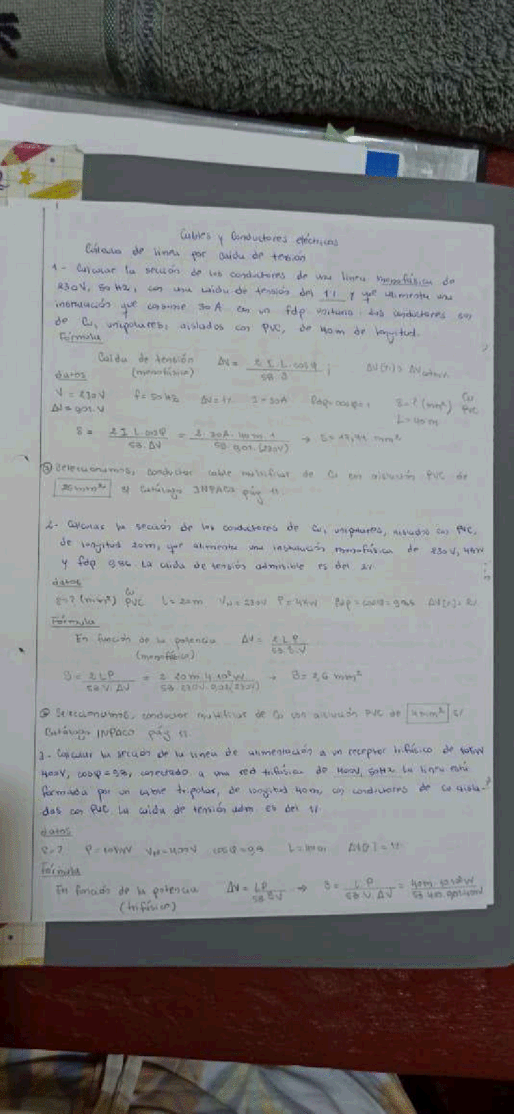 Cables y Conductores eléctricos
Cálculo de línea por caída de tensión
1- Calcular la sección de los conductores de una línea monofásica de
230V, 50 Hz, con una caída de tensión del 1% y que alimenta una
instalación que consume 30 A con un fdp unitario. Los conductores son
de Cu, unipolares, aislados con PVC, de 40m de longitud.
Fórmula
Caída de tensión ΔV = 2.I.L.cosφ / 58.S ;
(monofásica)
datos
V = 230V f = 50 Hz ΔV = 1% I = 30A fdp = cosφ = 1 S = ? (mm²) Cu PVC
L = 40m
S = 2.I.L.cosφ / 58.ΔV = 2.30A.40m.1 / 58.0,01.(230V) →
Seleccionamos, conductor cable multifilar de Cu con aislación PVC de
25mm² s/ Catálogo INPACO pág 11
2- Calcular la sección de los conductores de Cu, unipolares, aislados con PVC,
de longitud 20m, que alimenta una instalación monofásica de 230V, 4kW
y fdp 0,86 La caída de tensión admisible es del 2%
datos
S = ? (mm²) Cu PVC L = 20m V = 230V P = 4kW fdp = cosφ = 0,86
Fórmula
En función de la potencia ΔV = 2.L.P / 58.S.V
(monofásica)
S = 2.L.P / 58.V.ΔV = 2.20m.4.10³W / 58.230V.0,02(230V) → S = 2,6 mm²
Seleccionamos, conductor multifilar de Cu con aislación PVC de 4mm² s/
Catálogo INPACO pág 11
3- Calcular la sección de la línea de alimentación a un receptor trifásico de
400V, conectado a una red trifásica de 400V, 50Hz La línea está
formada por un cable tripolar, de longitud 40m, con conductores de Cu aisla-
dos con PVC La caída de tensión adm. es del 1%
datos
S = ?
Fórmula
En función de la potencia ΔV = L.P / 58.S.V → S = L.P / 58.V.ΔV
(trifásica)